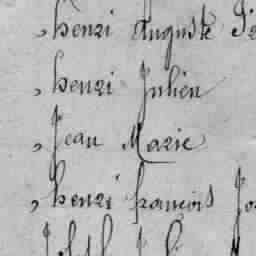 , henri Auguste
, henri Julien
, Jean Marie
, henri françois